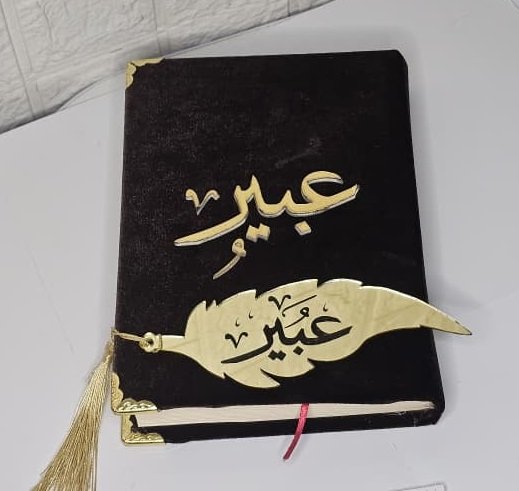 عبير
عبير